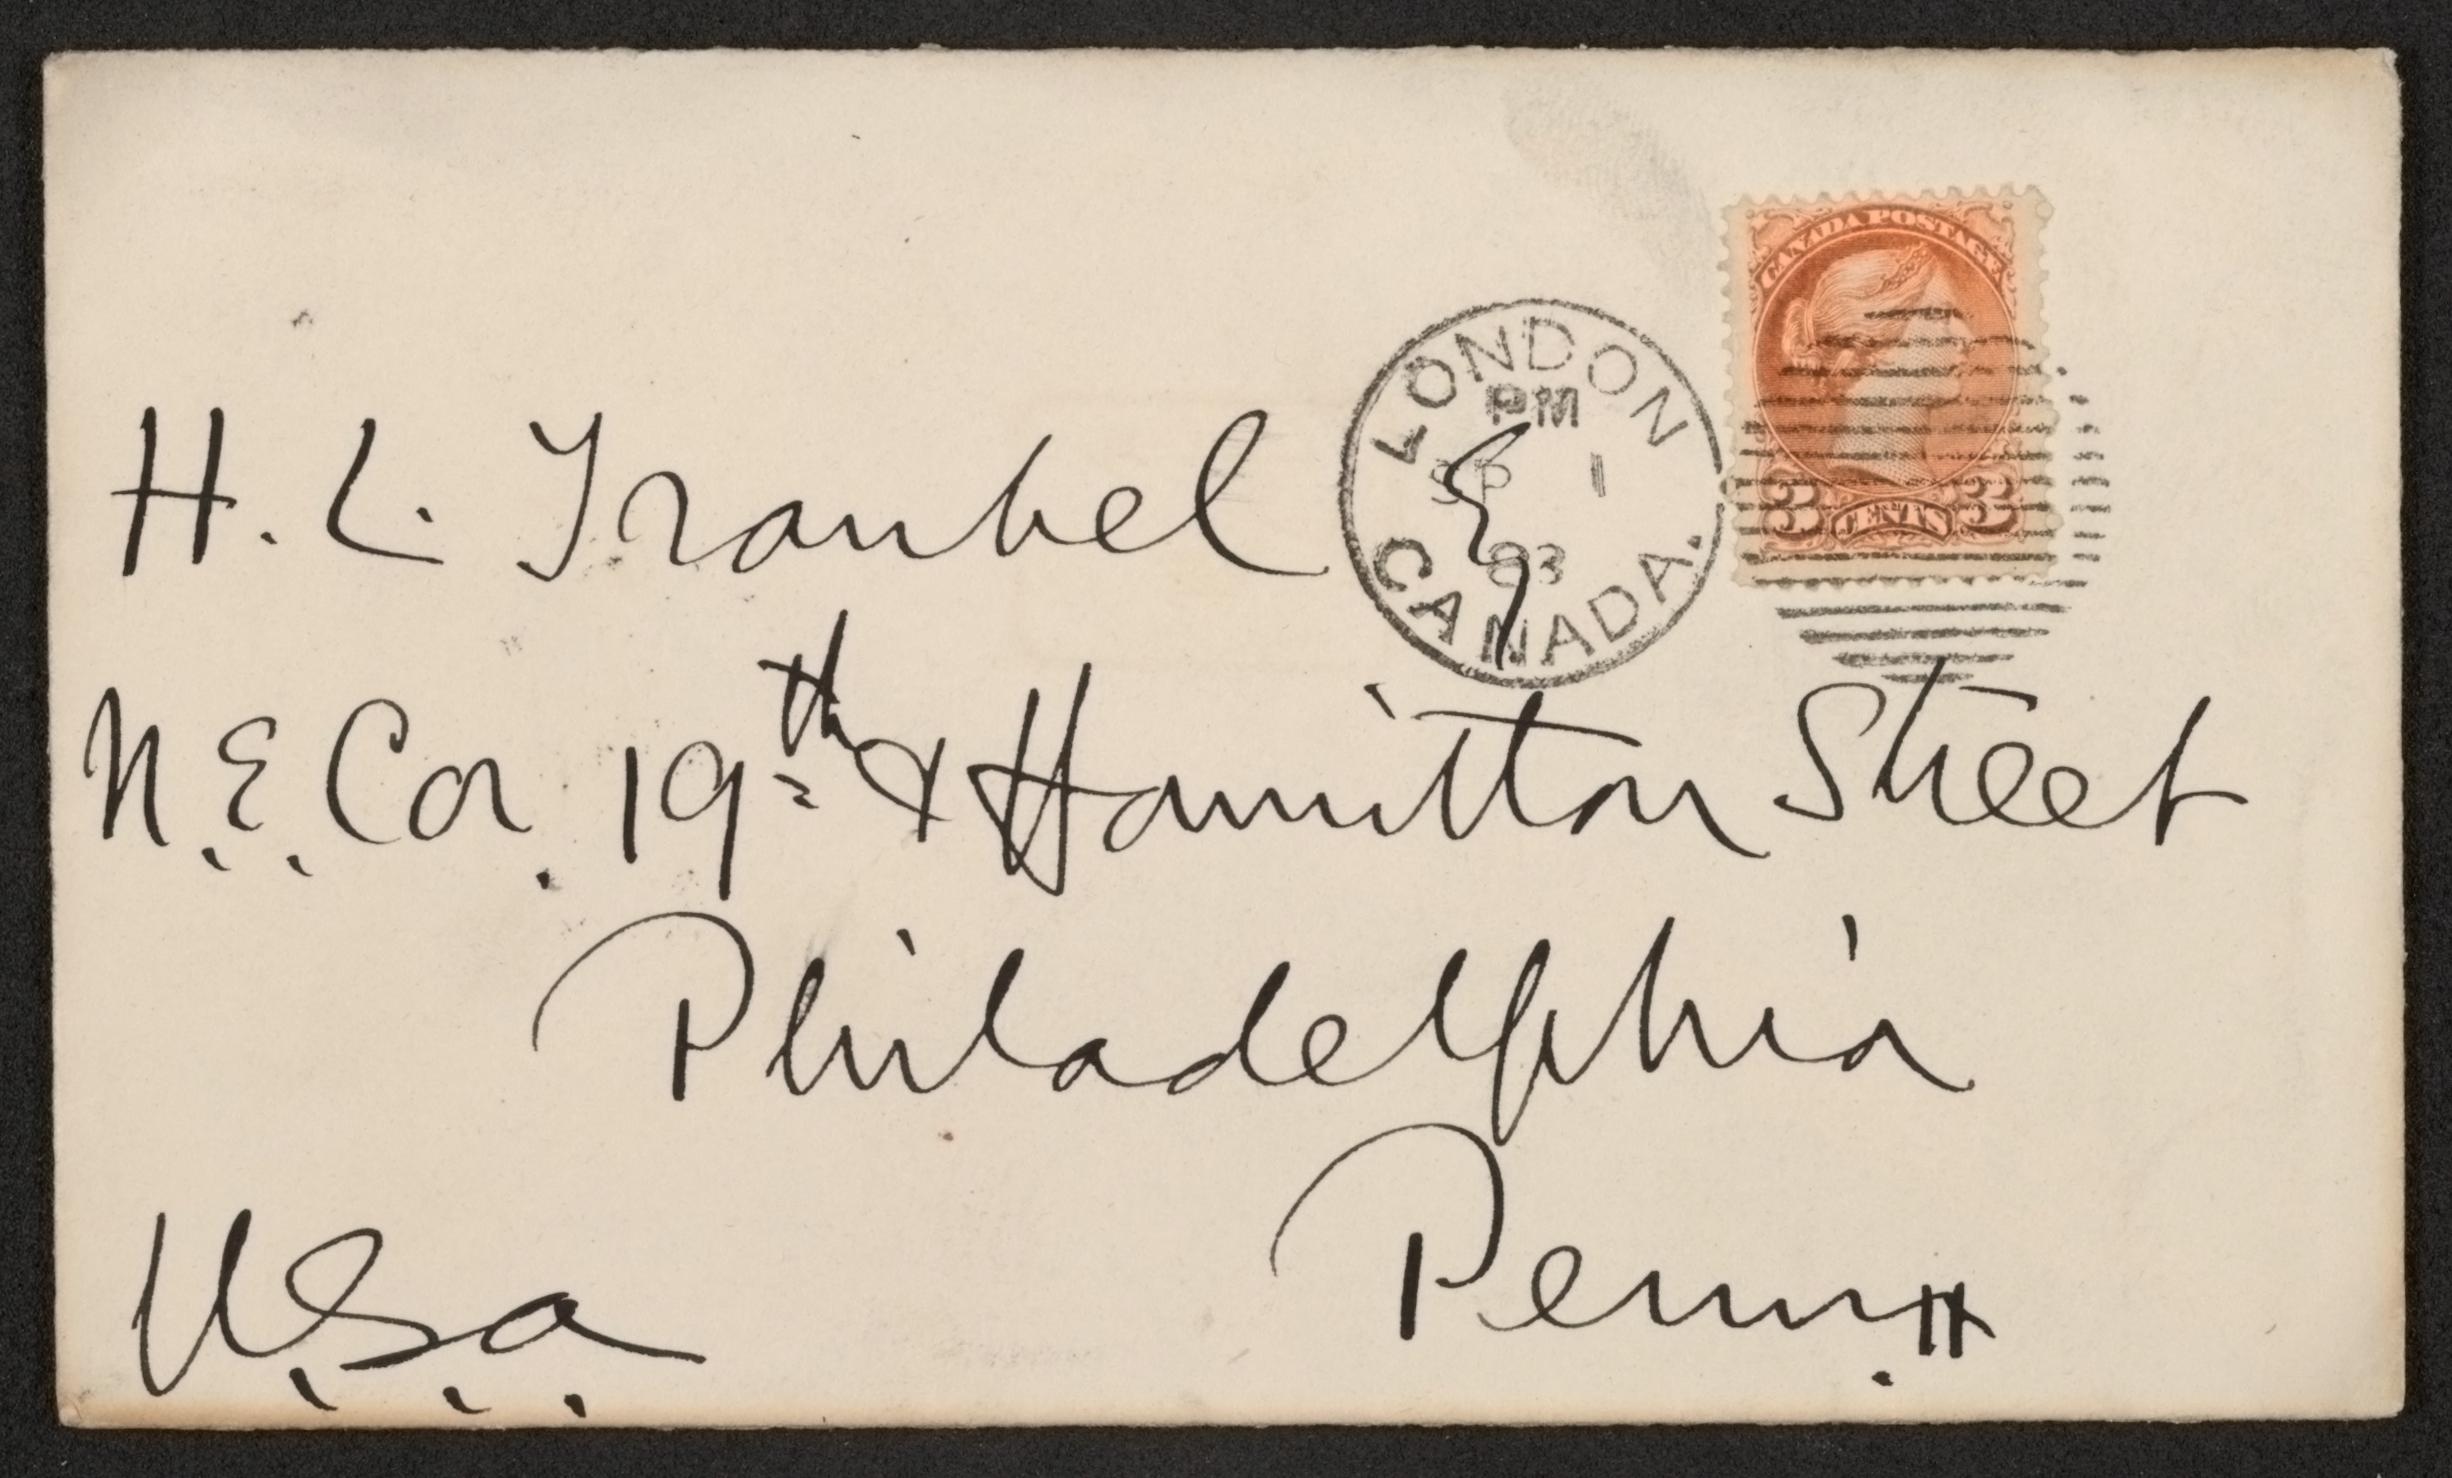 CANADA POSTAGE
3 CENTS 3
LONDON
PM
SP 1
93
CANADA.
H. L. Traubel
N. E. Cor. 19th & Hamilton Street
Philadelphia
Penn
U.S.a.